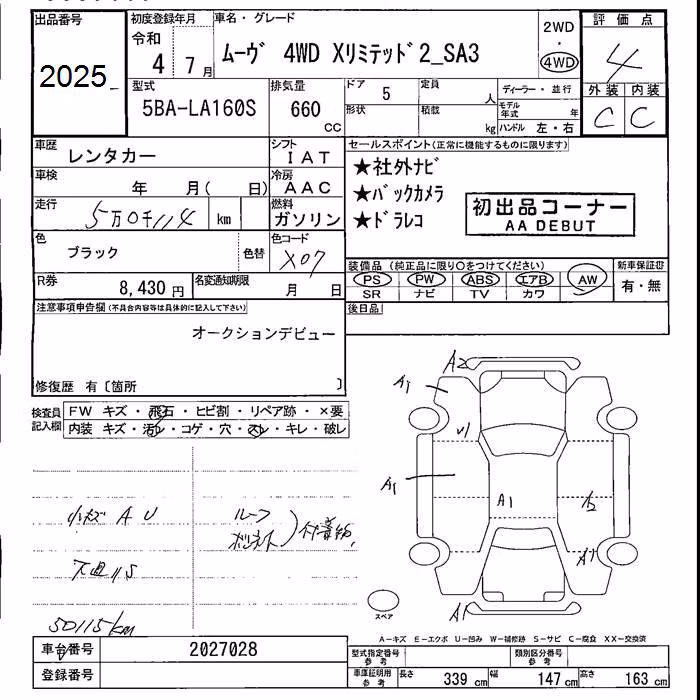 出品番号 初度登録年月 車名・グレード 2WD・4WD 評価点
2025 令和 4 7月 ムーヴ 4WD Xリミテッド2_SA3 4
型式 排気量 ドア 5 定員 人 ディーラー・並行 外装 内装
5BA-LA160S 660 cc 形状 積載 kg モデル年式 年 ハンドル 左・右 C C
車歴 レンタカー シフト IAT セールスポイント(正常に機能するものに限ります)
車検 年 月( 日) 冷房 AAC ★社外ナビ
走行 5万0千114 km 燃料 ガソリン ★バックカメラ
★ドラレコ
初出品コーナー
AA DEBUT
色 ブラック 色替 色コード X07
装備品(純正品に限り○をつけてください) 新車保証書
PS PW ABS エアB AW 有・無
SR ナビ TV カワ
R券 8,430 円 名変通知期限 月 日
後日品
注意事項申告欄(不具合内容等は具体的に記入して下さい)
オークションデビュー
修復歴 有〔箇所 〕
検査員記入欄 FW キズ・飛石・ヒビ割・リペア跡・×要
内装 キズ・汚レ・コゲ・穴・スレ・キレ・破レ
A2
A1
A1
A1
A1
A1
小キズ A U
ルーフ
ボンネット
下廻りS
50115km
スペア
A―キズ E―エクボ U―凹み W―補修跡 S―サビ C―腐食 XX―交換済
車台番号 2027028
登録番号
型式指定番号 参考 類別区分番号 参考
車庫証明用 参考 長さ 339 cm 幅 147 cm 高さ 163 cm